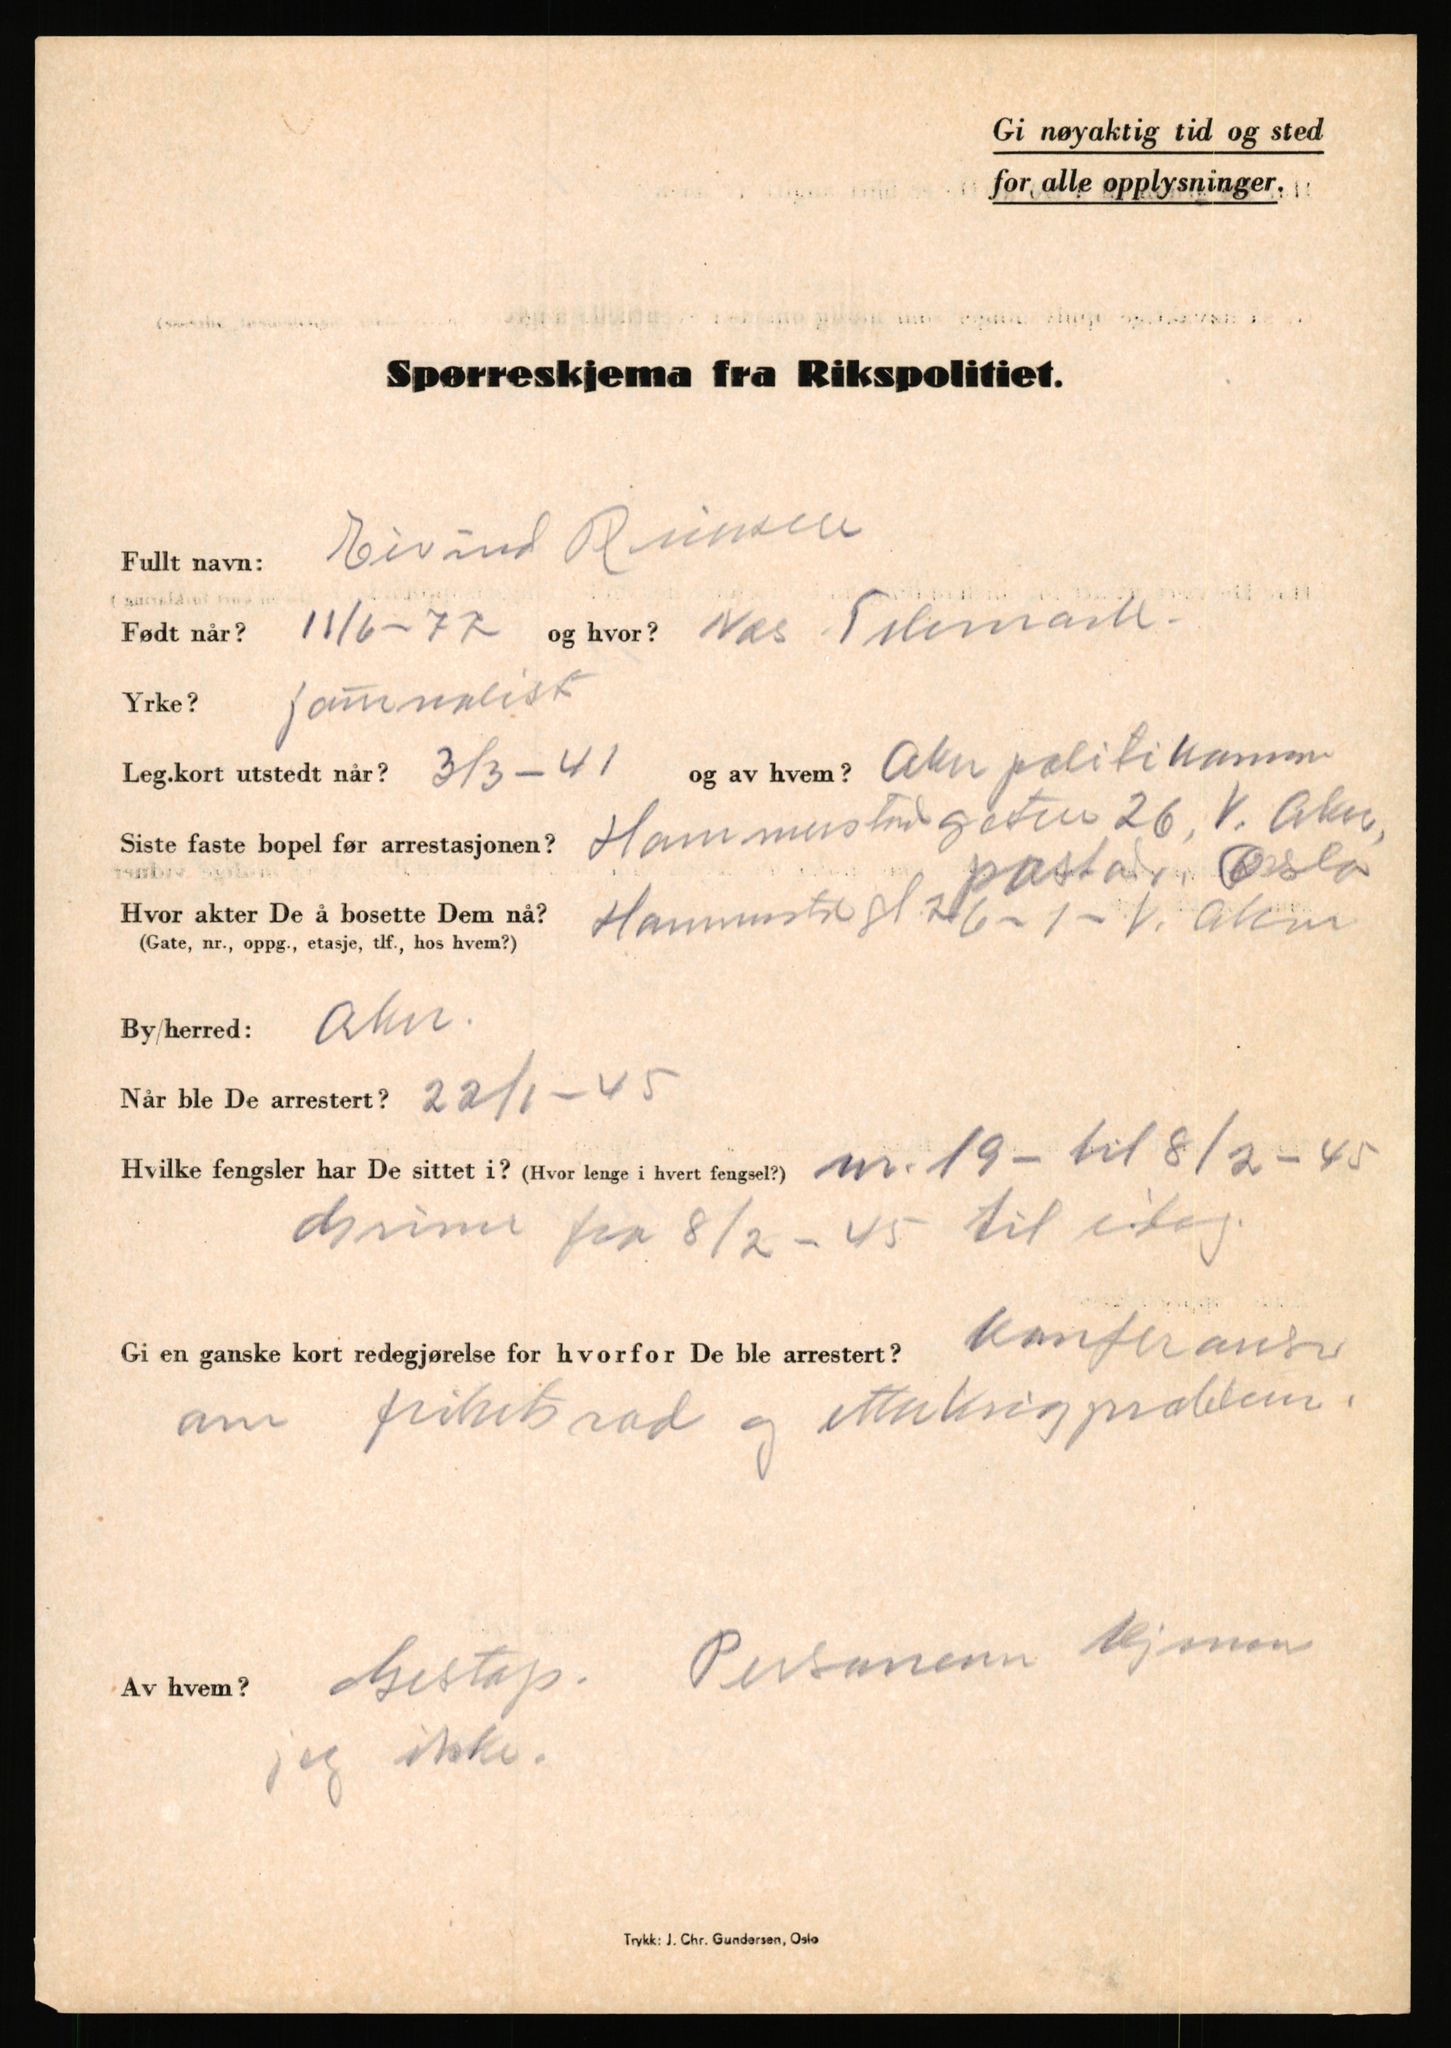 Gi nøyaktig tid og sted
for alle opplysninger.
Spørreskjema fra Rikspolitiet.
Fullt navn: Eivind Reiersen
Født når? 11/6-77 og hvor? Nes Telemark.
Yrke? journalist
Leg.kort utstedt når? 3/3-41 og av hvem? Aker politikammer
Siste faste bopel før arrestasjonen? Hammerstadgaten 26, V. Aker,
postadr. Oslo
Hvor akter De å bosette Dem nå? Hammerstd gt 26-1- V. Aker
(Gate, nr., oppg., etasje, tlf., hos hvem?)
By/herred: Aker.
Når ble De arrestert? 22/1-45
Hvilke fengsler har De sittet i? (Hvor lenge i hvert fengsel?) nr. 19 - til 8/2-45
Grini fra 8/2-45 til idag.
Gi en ganske kort redegjørelse for hvorfor De ble arrestert? Konferanser
om frihetsråd og etterkrigsproblem.
Av hvem? Gestapo. Personene kjenner
jeg ikke.
Trykk: J. Chr. Gundersen, Oslo